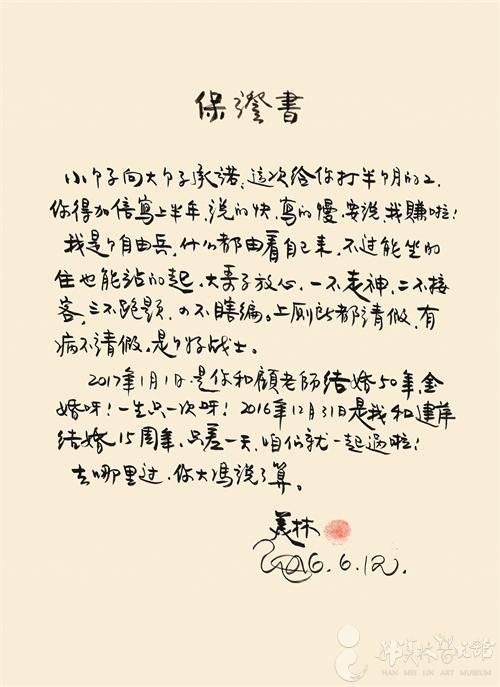 保證書
小个子向大个子承诺，這次给你打半个月的工，
你得加倍寫上半年，说的快，寫的慢，要说，我賺啦！
我是个自由兵，什么都由着自己来，不过能坐的
住也能站的起，大哥子放心，一不走神，二不接
客，三不跑题，四不瞎编。上厕所都請假，有
病不請假，是个好战士。
2017年1月1日是你和顧老師结婚50年，金
婚呀！一生只一次呀！2016年12月31日是我和建萍
结婚15周年，只差一天，咱们就一起過啦！
去哪里过，你大馮说了算。
美林
2016.6.12.
韩美林艺术館
HAN MEI LIN ART MUSEUM